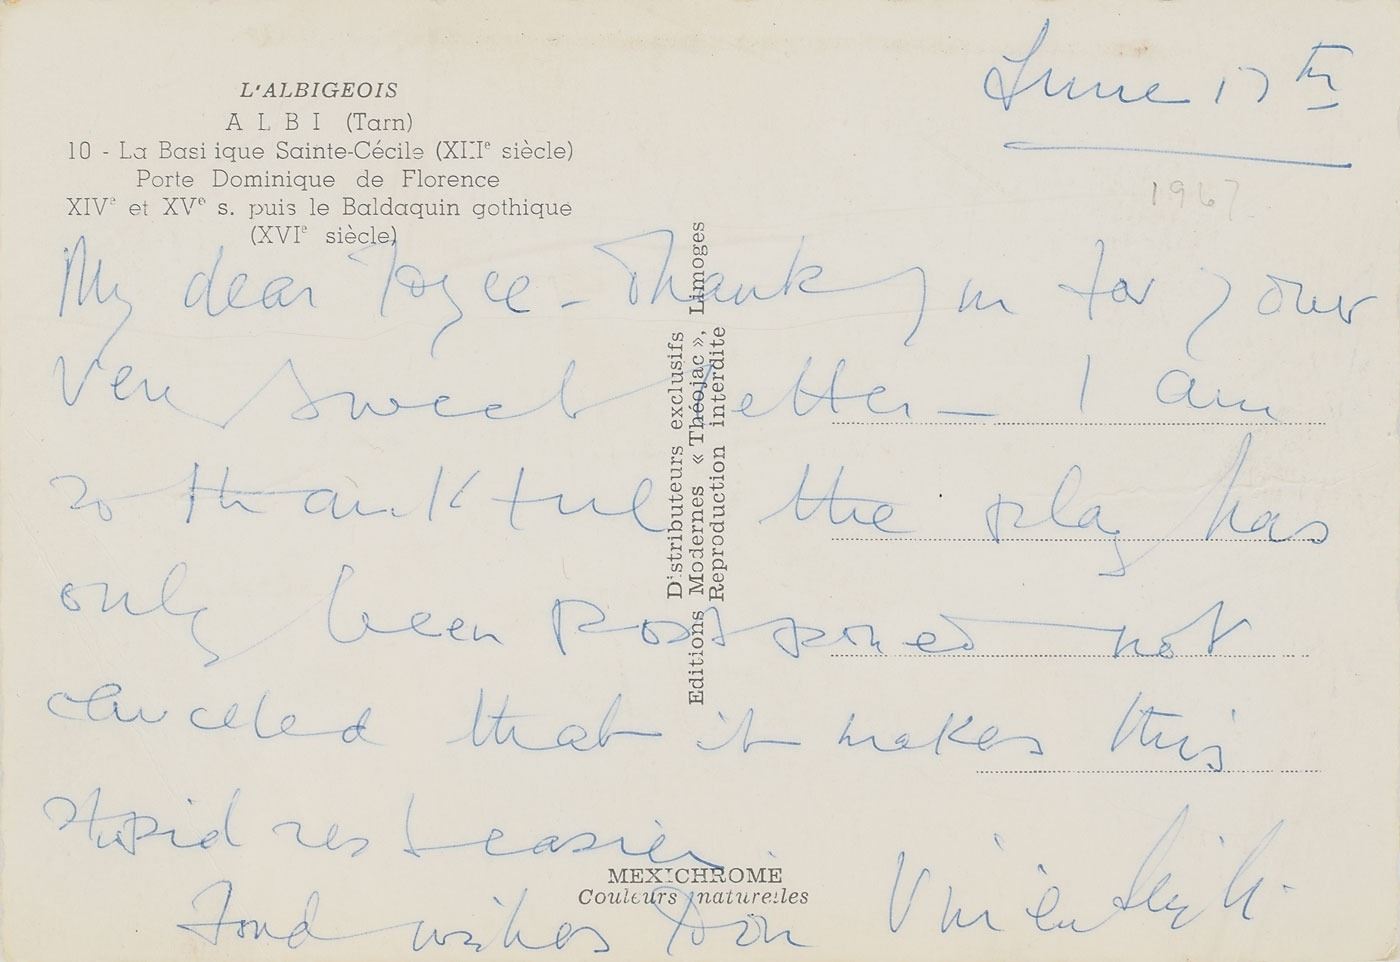 L'ALBIGEOIS
ALBI (Tarn)
10 - La Basi ique Sainte-Cécile (XIIIe siècle)
Porte Dominique de Florence
XIVe et XVe s. puis le Baldaquin gothique
(XVIe siècle)
June 17th
1967
My dear Joyce - Thank you for your
very sweet letter - I am
so thankful the play has
only been postponed not
canceled that it makes this
stupid rest easier.
Fond wishes from Vivien Leigh.
Distributeurs exclusifs
Editions Modernes « Théojac », Limoges
Reproduction interdite
MEXICHROME
Couleurs naturelles